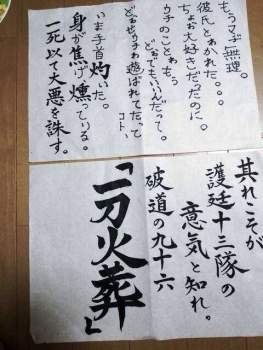 もうマヂ無理。
彼氏とゎかれた。。。
ちょぉ大好きだったのに。
ウチのことゎもぅ
どぉでもいいんだって。
どぉせウチゎ遊ばれてたってコト、
いま手首灼いた。
身が焦げ燻っている。
一死以て大悪を誅す。
其れこそが
護廷十三隊の
意気と知れ。
破道の九十六
『一刀火葬』